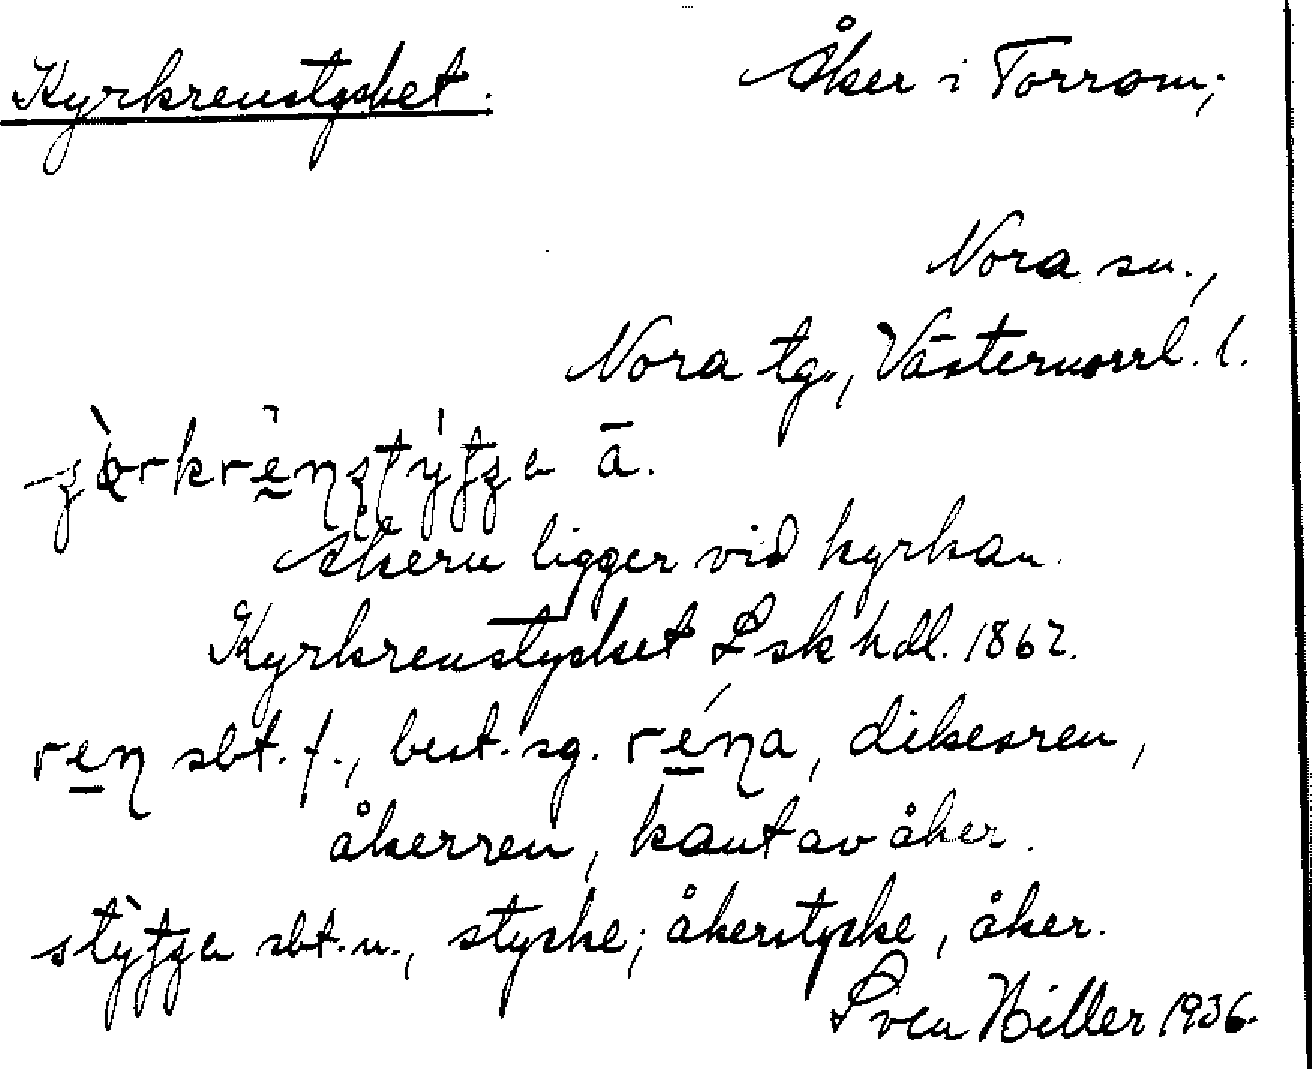 Kyrkrenstycket. Åker i Torrom;
Nora sn.,
Nora tg., Västernorrl. l.
ā.
Åkern ligger vid kyrkan.
Kyrkrenstycket Lskhdl. 1862.
ren sbt. f., best. sg. réna, dikesren,
åkerren, kant av åker.
sbt. n., stycke; åkerstycke, åker.
Sven Hiller 1936.